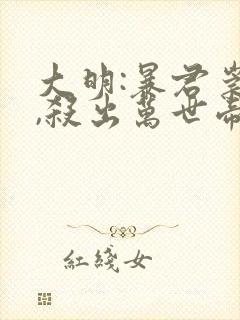 大明:暴君崇
,殺出萬世帝
紅綫女